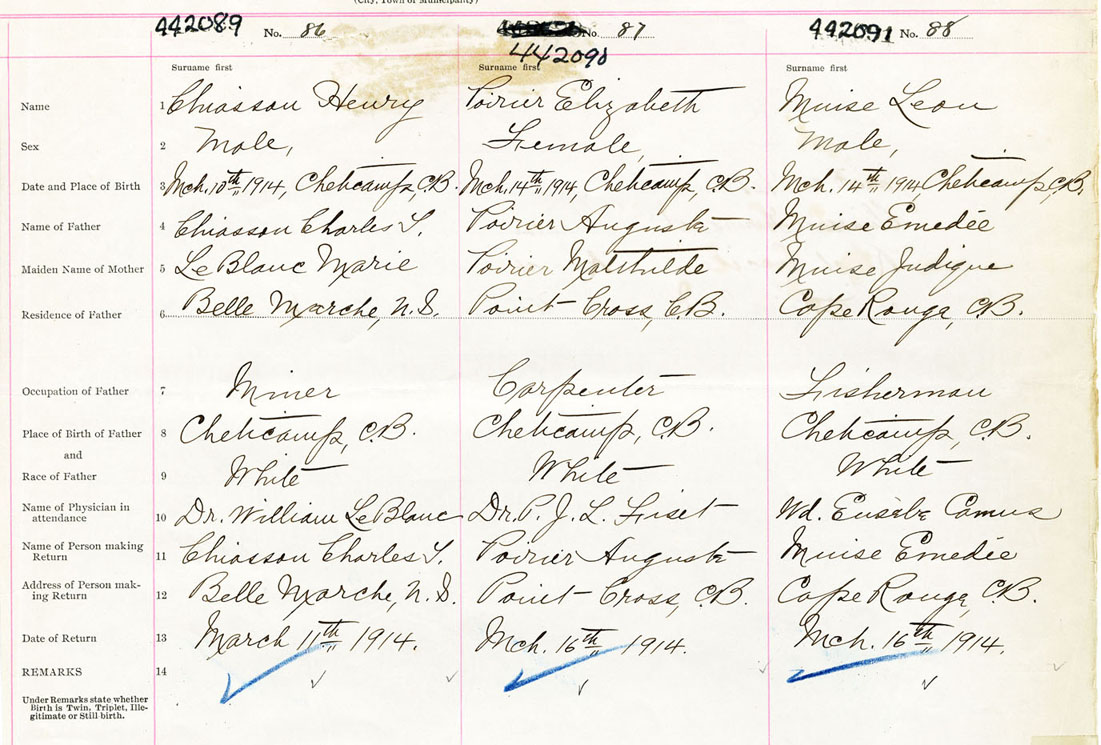 (City, Town or Municipality)
442089 No. 86 No. 87 442091 No. 88
442090
Surname first Surname first Surname first
Name 1 Chiasson Henry Poirier Elizabeth Muise Leon
Sex 2 Male, Female, Male,
Date and Place of Birth 3 Mch. 10th 1914, Cheticamp, C.B. Mch. 14th 1914, Cheticamp, C.B. Mch. 14th 1914 Cheticamp, C.B.
Name of Father 4 Chiasson Charles L. Poirier Auguste Muise Emedée
Maiden Name of Mother 5 LeBlanc Marie Poirier Matthilde Muise Judique
Residence of Father 6 Belle Marche, N.S. Point Cross, C.B. Cape Rouge, C.B.
Occupation of Father 7 Miner Carpenter Fisherman
Place of Birth of Father 8 Cheticamp, C.B. Cheticamp, C.B. Cheticamp, C.B.
and
Race of Father 9 White White White
Name of Physician in
attendance 10 Dr. William LeBlanc Dr. P. J. L. Fiset Wd. Eusèbe Camus
Name of Person making
Return 11 Chiasson Charles L. Poirier Auguste Muise Emedée
Address of Person mak-
ing Return 12 Belle Marche, N.S. Point Cross, C.B. Cape Rouge, C.B.
Date of Return 13 March 11th 1914. Mch. 16th 1914. Mch. 16th 1914.
REMARKS 14
Under Remarks state whether
Birth is Twin, Triplet, Ille-
gitimate or Still birth.